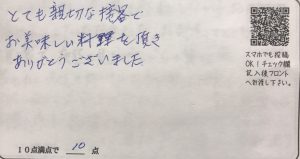 とても親切な接客で
お美味しい料理を頂き
ありがとうございました
スマホでも投稿
OK！チェック欄
記入後フロント
へお渡し下さい。
10点満点で 10 点